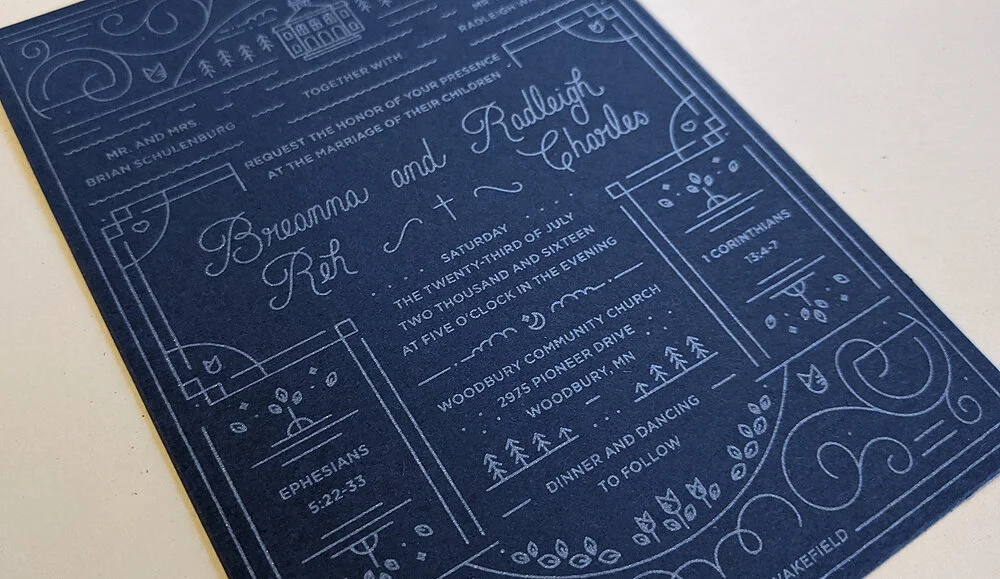 MR. AND MRS.
BRIAN SCHULENBURG
TOGETHER WITH
RADLEIGH
REQUEST THE HONOR OF YOUR PRESENCE
AT THE MARRIAGE OF THEIR CHILDREN
Breanna and Radleigh
Reh Charles
SATURDAY
THE TWENTY-THIRD OF JULY
TWO THOUSAND AND SIXTEEN
AT FIVE O'CLOCK IN THE EVENING
WOODBURY COMMUNITY CHURCH
2975 PIONEER DRIVE
WOODBURY, MN
DINNER AND DANCING
TO FOLLOW
EPHESIANS
5:22-33
1 CORINTHIANS
13:4-7
WAKEFIELD